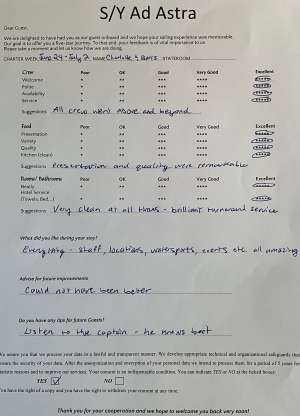 S/Y Ad Astra
Dear Guest,
We are delighted to have had you as our guest onboard and we hope your sailing experience was memorable.
Our goal is to offer you a five-star journey. To that end, your feedback is of vital importance to us.
Please take a moment and let us know how we are doing.
CHARTER WEEK June 24 - July 2 NAME Charlotte & STATEROOM
Crew Poor OK Good Very Good Excellent
Welcome * ** *** **** *****
Polite * ** *** **** *****
Availability * ** *** **** *****
Service * ** *** **** *****
Suggestions All crew went above and beyond
Food Poor OK Good Very Good Excellent
Presentation * ** *** **** *****
Variety * ** *** **** *****
Quality * ** *** **** *****
Kitchen (clean) * ** *** **** *****
Suggestions Presentation and quality were remarkable
Rooms/ Bathrooms Poor OK Good Very Good Excellent
Ready * ** *** **** *****
Hotel Service
(Towels, Bed...) * ** *** **** *****
Suggestions Very clean at all times - brilliant turnaround service
What did you like during your stay?
Everything - staff, locations, watersports, events etc. all amazing
Advise for future improvements
Could not have been better
Do you have any tips for future Guests?
Listen to the captain - he knows best
We assure you that we process your data in a lawful and transparent manner. We develop appropriate technical and organizational safeguards that
ensure the security of your data. After the anonymization and encryption of your personal data we intend to process them for a period of 5 years for
statistic reasons and to improve our services. Your consent is an indispensable condition. You can indicate YES or NO at the linked boxes:
YES NO
You have the right of a copy and you have the right to withdraw your consent at any time.
Thank you for your cooperation and we hope to welcome you back very soon!